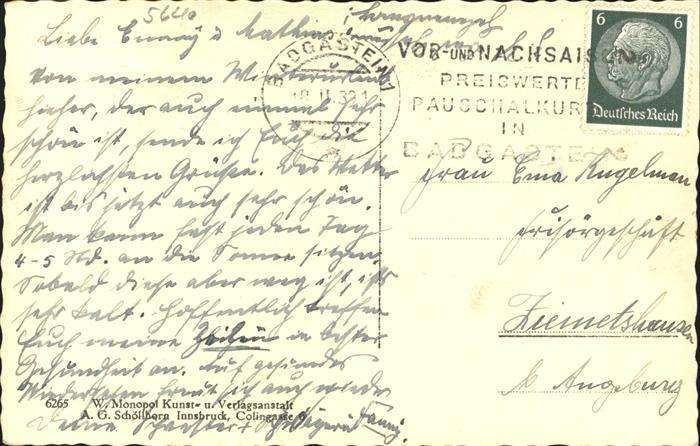 5640
Liebe Emmy u Mathias
von meinem Winterurlaub
hieher, der auch einmal sehr
schön ist, sende ich Euch die
herzlichsten Grüsse. Das Wetter
ist bis jetzt auch sehr schön.
Man kann fast jeden Tag
4-5 Std. an die Sonne sitzen,
Sobald diese aber weg ist, ists
sehr kalt. Hoffentlich treffen
Euch meine Zeilen in bester
Gesundheit an. Auf gesundes
Wiedersehen freut sich auch wieder
Deine Schwester u Schwägerin Fanny.
BADGASTEIN 1
VOR- UND NACHSAISON
PREISWERTE
PAUSCHALKUREN
IN
BADGASTEIN
6 6
Deutsches Reich
Frau Ema Kugelman
Frisörgeschäft
Ziemetshausen
b Augsburg
6265 W. Monopol Kunst- u. Verlagsanstalt
A. G. Schöllhorn Innsbruck, Colingasse 9